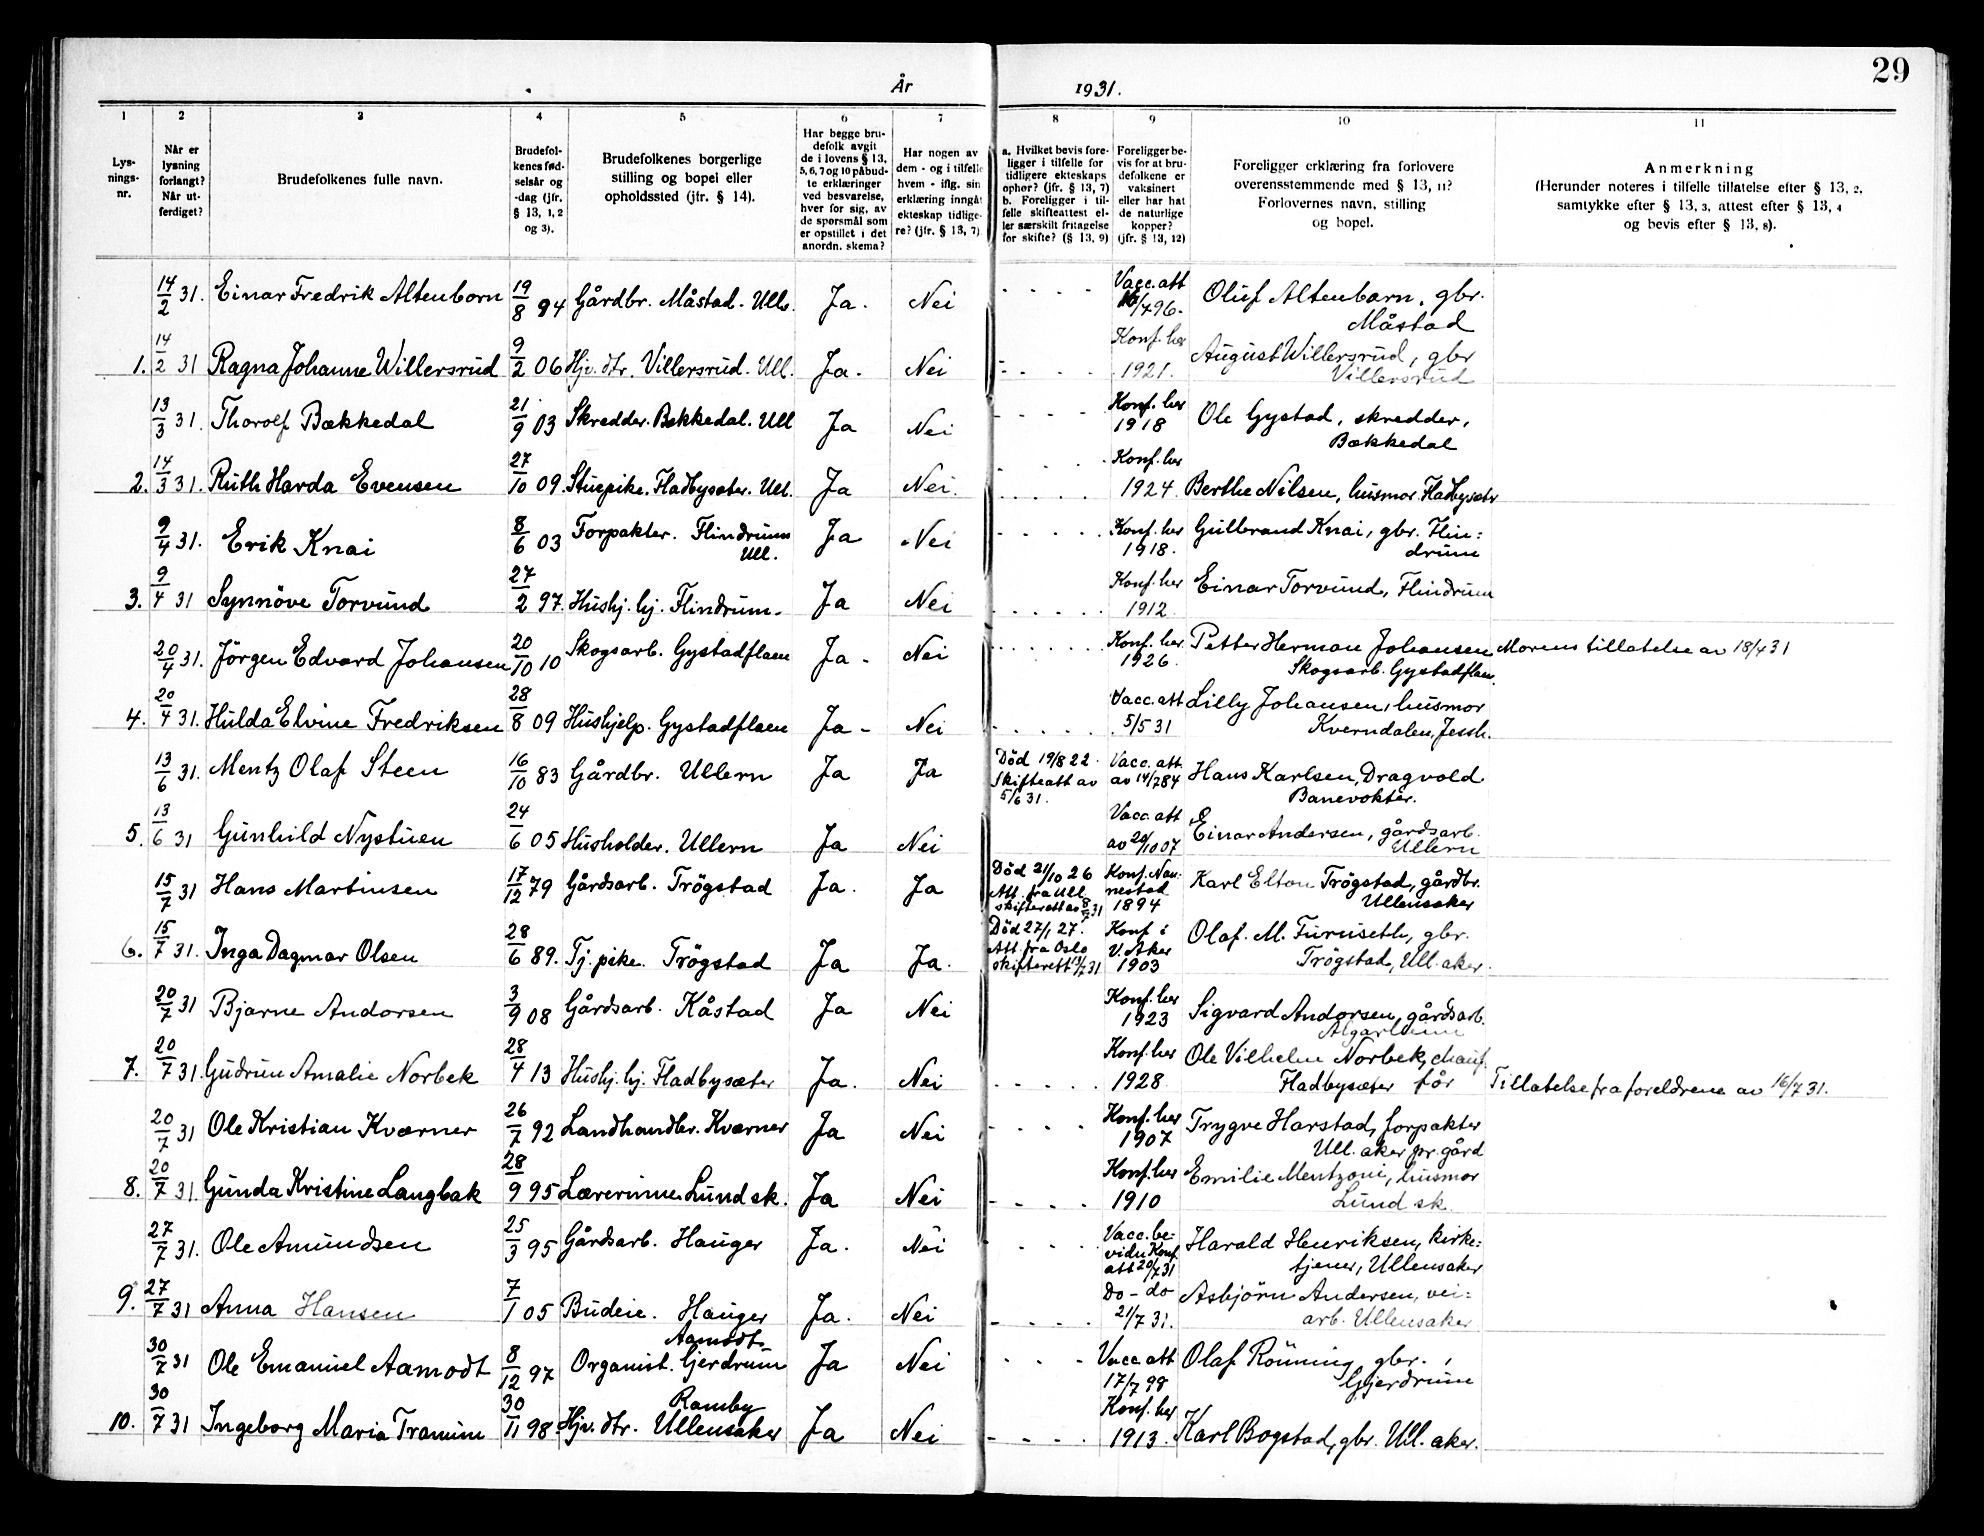 29
År 1931.
1 2 3 4 5 6 7 8 9 10 11
Lys-
nings-
nr.
Når er
lysning
forlangt?
Når ut-
ferdiget?
Brudefolkenes fulle navn.
Brudefol-
kenes fød-
selsår og
-dag (jfr.
§ 13, 1, 2
og 3).
Brudefolkenes borgerlige
stilling og bopel eller
opholdssted (jfr. § 14).
Har begge bru-
defolk avgit
de i lovens § 13,
5, 6, 7 og 10 påbud-
te erklæringer
ved besvarelse,
hver for sig, av
de spørsmål som
er opstillet i det
anordn. skema?
Har nogen av
dem - og i tilfelle
hvem - iflg. sin
erklæring inngåt
ekteskap tidlige-
re? (jfr. § 13, 7)
a. Hvilket bevis fore-
ligger i tilfelle for
tidligere ekteskaps
ophør? (jfr. § 13, 7)
b. Foreligger i til-
felle skifteattest el-
ler særskilt fritagelse
for skifte? (§ 13, 9)
Foreligger be-
vis for at bru-
defolkene er
vaksinert
eller har hat
de naturlige
kopper?
(jfr. § 13, 12)
Foreligger erklæring fra forlovere
overensstemmende med § 13, 11?
Forlovernes navn, stilling
og bopel.
Anmerkning
(Herunder noteres i tilfelle tillatelse efter § 13, 2,
samtykke efter § 13, 3, attest efter § 13, 4
og bevis efter § 13, 8).
14/2 31. Einar Fredrik Altenborn 19/8 94 Gårdbr. Måstad. Ull. Ja. Nei Vacc. att /4 96. Oluf Altenborn, gbr.
Måstad
1. 14/2 31 Ragna Johanne Willersrud 9/2 06 Hjv. dtr. Villersrud. Ull. Ja. Nei Konf. her 1921. August Willersrud, gbr
Villersrud
13/3 31. Thorolf Bækkedal 21/9 03 Skredder. Bækkedal. Ull Ja Nei Konf. her 1918 Ole Gystad, skredder,
Bækkedal
2. 14/3 31. Ruth Harda Evensen 27/10 09. Stuepike. Fladbysæter. Ull. Ja Nei. Konf. her 1924 Berthe Nilsen, husmor Fladbysætr
9/4 31. Erik Knai 8/6 03 Forpakter. Flindrum
Ull. Ja Nei Konf. her 1918. Gulbrand Knai, gbr. Flin=
drum
3. 9/4 31 Synnöve Torvund 27/2 97. Hushj. hj. Flindrum. Ja Nei Konf. her 1912 Einar Torvund, Flindrum
20/4 31. Jörgen Edvard Johansen 20/10 10 Skogsarb. Gystadflaen Ja - Nei Konf. her 1926. Petter Herman Johansen Morens tillatelse av 18/4 31
Skogsarb. Gystadflaen.
4. 20/4 31. Hulda Elvine Fredriksen 28/8 09 Hushjelp. Gystadflaen Ja - Nei Vacc. att 5/5 31 Lilly Johansen, husmor
Kverndalen, Jessh.
13/6 31. Mentz Olaf Steen 16/10 83 Gårdbr. Ullern Ja Ja Död 19/8 22.
Skifteatt av
5/6 31. Vacc. att
av 14/7 84 Hans Karlsen, Dragvold
Banevokter.
5. 13/6 31 Gunhild Nystuen 24/6 05 Husholder. Ullern Ja Nei Vacc. att
av 20/10 07 Einar Andersen, gårdsarb.
Ullern
15/7 31 Hans Martinsen 17/12 79 Gårdsarb. Trögstad Ja. Ja Död 21/10 26
Att. fra Ull.
skifterett av 8/7 31 Konf. Nan-
nestad
1894 Karl Elton Trögstad, gårdbr.
Ullensaker
6. 15/7 31. Inga Dagmar Olsen 28/6 89. Tj. pike. Trögstad Ja Ja. Död 27/1 27.
Att. fra Oslo
skifterett /7 31 Konf. i
V. Aker
1903 Olaf. M. Furuseth, gbr.
Trögstad, Ull. aker.
20/7 31 Bjarne Andorsen 3/9 08 Gårdsarb. Kåstad Ja Nei Konf. her 1923 Sigvard Andorsen, gårdsarb.
Algarheim
7. 20/7 31. Gudrun Amalie Norbek 28/4 13 Hushj. hj. Fladbysæter Ja. Nei Konf. her 1928 Ole Vilhelm Norbek, chauf
Fladbysæter för Tillatelse fra foreldrene av 16/7 31.
20/7 31 Ole Kristian Kværner 26/7 92 Landhandler. Kværner Ja Nei Konf. her 1907 Trygve Harstad, forpakter
Ull. aker pr. gård
8. 20/7 31 Gunda Kristine Langbak 28/9 95 Lærerinne. Lund sk. Ja Nei Konf. her 1910 Emilie Mentzoni, husmor
Lund sk.
27/7 31. Ole Amundsen 25/3 95 Gårdsarb. Hauger Ja. Nei Vacc. be=
vidn Konf.
att 20/7 31 Harald Henriksen, kirke=
tjener, Ullensaker
9. 27/7 31 Anna Hansen 7/1 05 Budeie. Hauger Ja. Nei Do - do
21/7 31. Asbjörn Andersen, vei=
arb. Ullensaker
30/7 31 Ole Emanuel Aamodt 8/12 97 Aamodt.
Organist. Gjerdrum Ja Nei Vacc. att
17/7 98 Olaf Rönning, gbr.,
Gjerdrum
10. 30/7 31 Ingeborg Maria Tranum 30/11 98. Ramby
Hjv. dtr. Ullensaker Ja Nei Konf. her 1913. Karl Bogstad, gbr. Ull. aker.